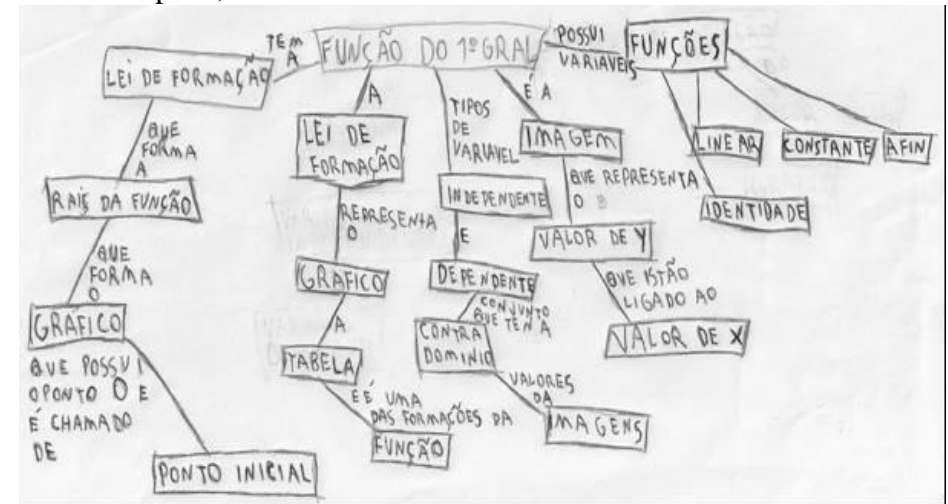 TEM
A
FUNÇÃO DO 1º GRAL
POSSUI
VARIAVEIS
FUNÇÕES
LEI DE FORMAÇÃO
QUE
FORMA
A
RAIS DA FUNÇÃO
QUE
FORMA
O
GRÁFICO
QUE POSSUI
O PONTO O E
É CHAMADO
DE
PONTO INICIAL
A
LEI DE
FORMAÇÃO
REPRESENTA
O
GRAFICO
A
TABELA
E É UMA
DAS FORMAÇÕES DA
FUNÇÃO
TIPOS
DE
VARIAVEL
INDEPENDENTE
E
DEPENDENTE
CONJUNTO
QUE TEN A
CONTRA
DOMINIO
VALORES
DA
IMAGENS
E A
IMAGEM
QUE REPRESENTA
O
VALOR DE Y
QUE ISTÃO
LIGADO AO
VALOR DE X
LINEAR
CONSTANTE
AFIN
IDENTIDADE